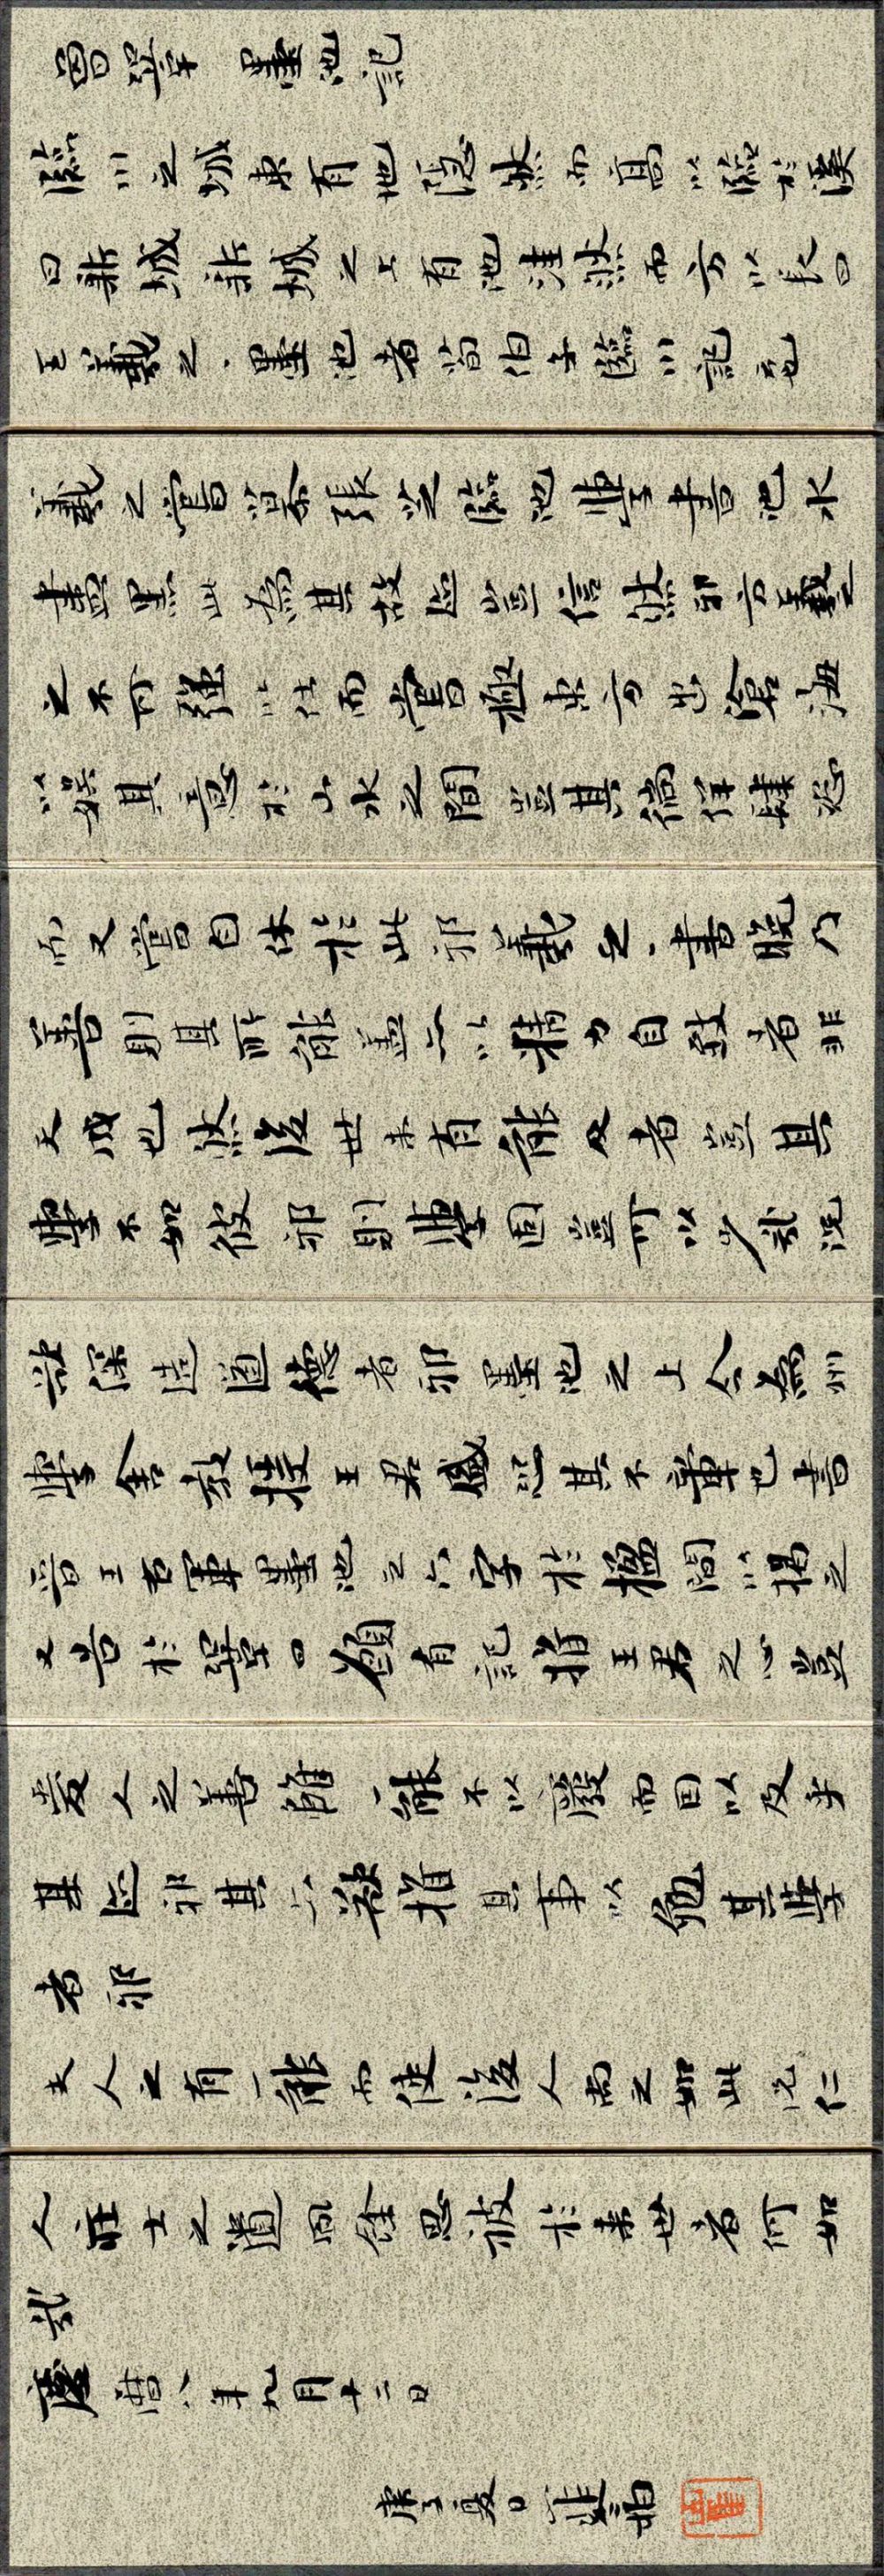 曾鞏 墨池記
臨川之城東有地隐然而高以臨於溪
曰新城新城之上有池窪然而方以長曰
王羲之、墨池者荀伯子臨川記云也
羲之嘗慕張芝臨池學書池水
盡黑此為其故迹豈信然邪方羲之
之不可强以仕而嘗極東方出滄海
以娱其意於山水之間豈其徜徉肆恣
而又嘗自休於此邪羲之、書晚乃
善則其所能蓋亦以精力自致者非
天成也然後世未有能及者豈其
學不如彼邪則學固豈可以少哉況
欲深造道德者邪墨池之上今為州
學舍教授王君盛恐其不章也書
晋王右軍墨池之六字於楹間以揭之
又告於鞏曰願有記推王君之心豈
愛人之善雖一能不以廢而因以及乎
其迹邪其亦欲推其事以勉其學
者邪
夫人之有一能而使後人尚之如此況仁
人莊士之遺風餘思被於来世者何如
哉
慶曆八年九月十二日
庚子夏日